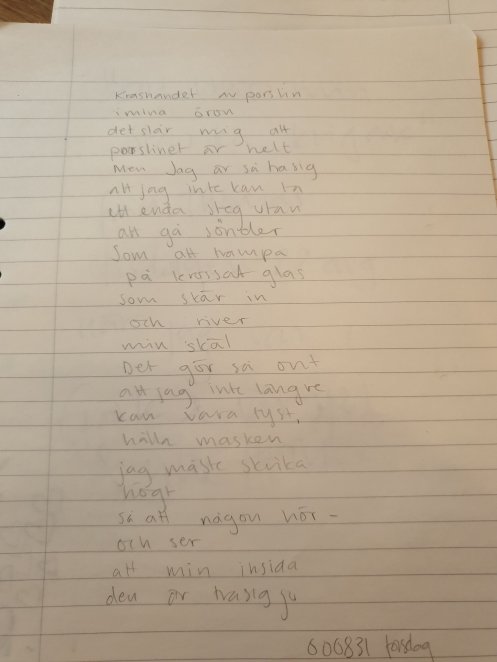 Krashandet av porslin
i mina öron
det slår mig att
porslinet är helt
Men Jag är så trasig
att jag inte kan ta
ett enda steg utan
att gå sönder
Som att trampa
på krossat glas
som skär in
och river
min skäl
Det gör så ont
att jag inte längre
kan vara tyst,
hålla masken
jag måste skrika
högt
så att någon hör -
och ser
att min insida
den är trasig ju
000831 torsdag